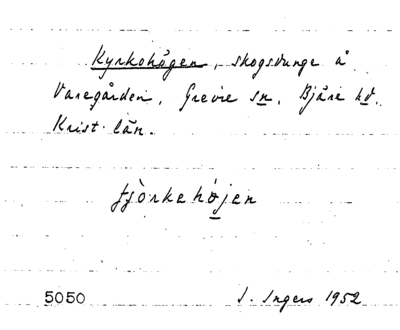 Kyrkohögen, skogsdunge å
Varegården, Grevie sn, Bjäre hd.
Krist. län.
tjòrkehøjen
5050 I. Ingers 1952